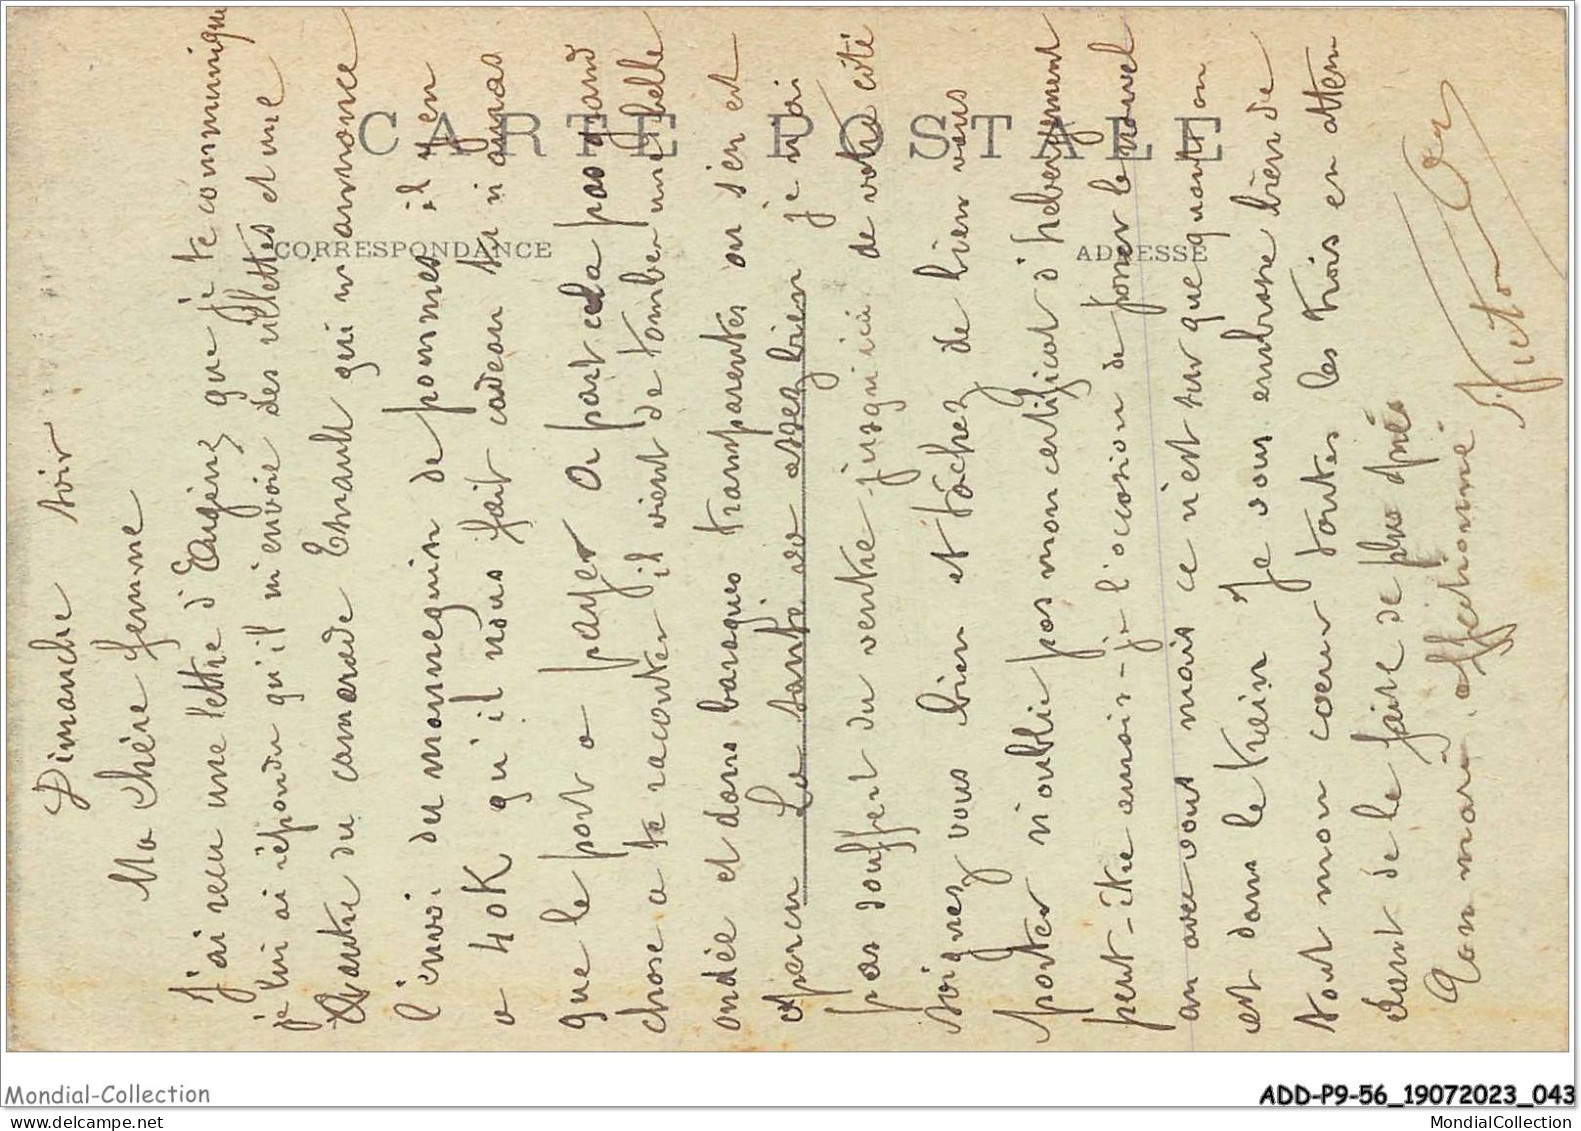 CARTE POSTALE
CORRESPONDANCE
ADRESSE
Dimanche soir
Ma chère femme
J'ai reçu une lettre d'Eugène que je te communique
je lui ai répondu qu'il m'envoie des et une
autre du camarade Enault qui m'annonce
l'envoi du mannequin de pommes il y en
a 40K qu'il nous fait cadeau tu n'auras
que le port a payer A part cela pas grand
chose a te raconter il vient de tomber une belle
ondée et dans baraques transparentes on s'en est
aperçu La santé va assez bien je n'ai
pas souffert du ventre jusqu'ici. de votre côté
soignez vous bien et tâchez de bien vous
porter n'oublie pas mon certificat d'hébergement
peut-être aurais-je l'occasion de poser le nouvel
an avec vous mais ce n'est sur que quant on
est dans le train Je vous embrasse bien de
tout mon cœur toutes les trois en atten
dant de le faire de plus près
Ton mari affectionné
Victor
Mondial-Collection
ADD-P9-56_19072023_043
MondialCollection